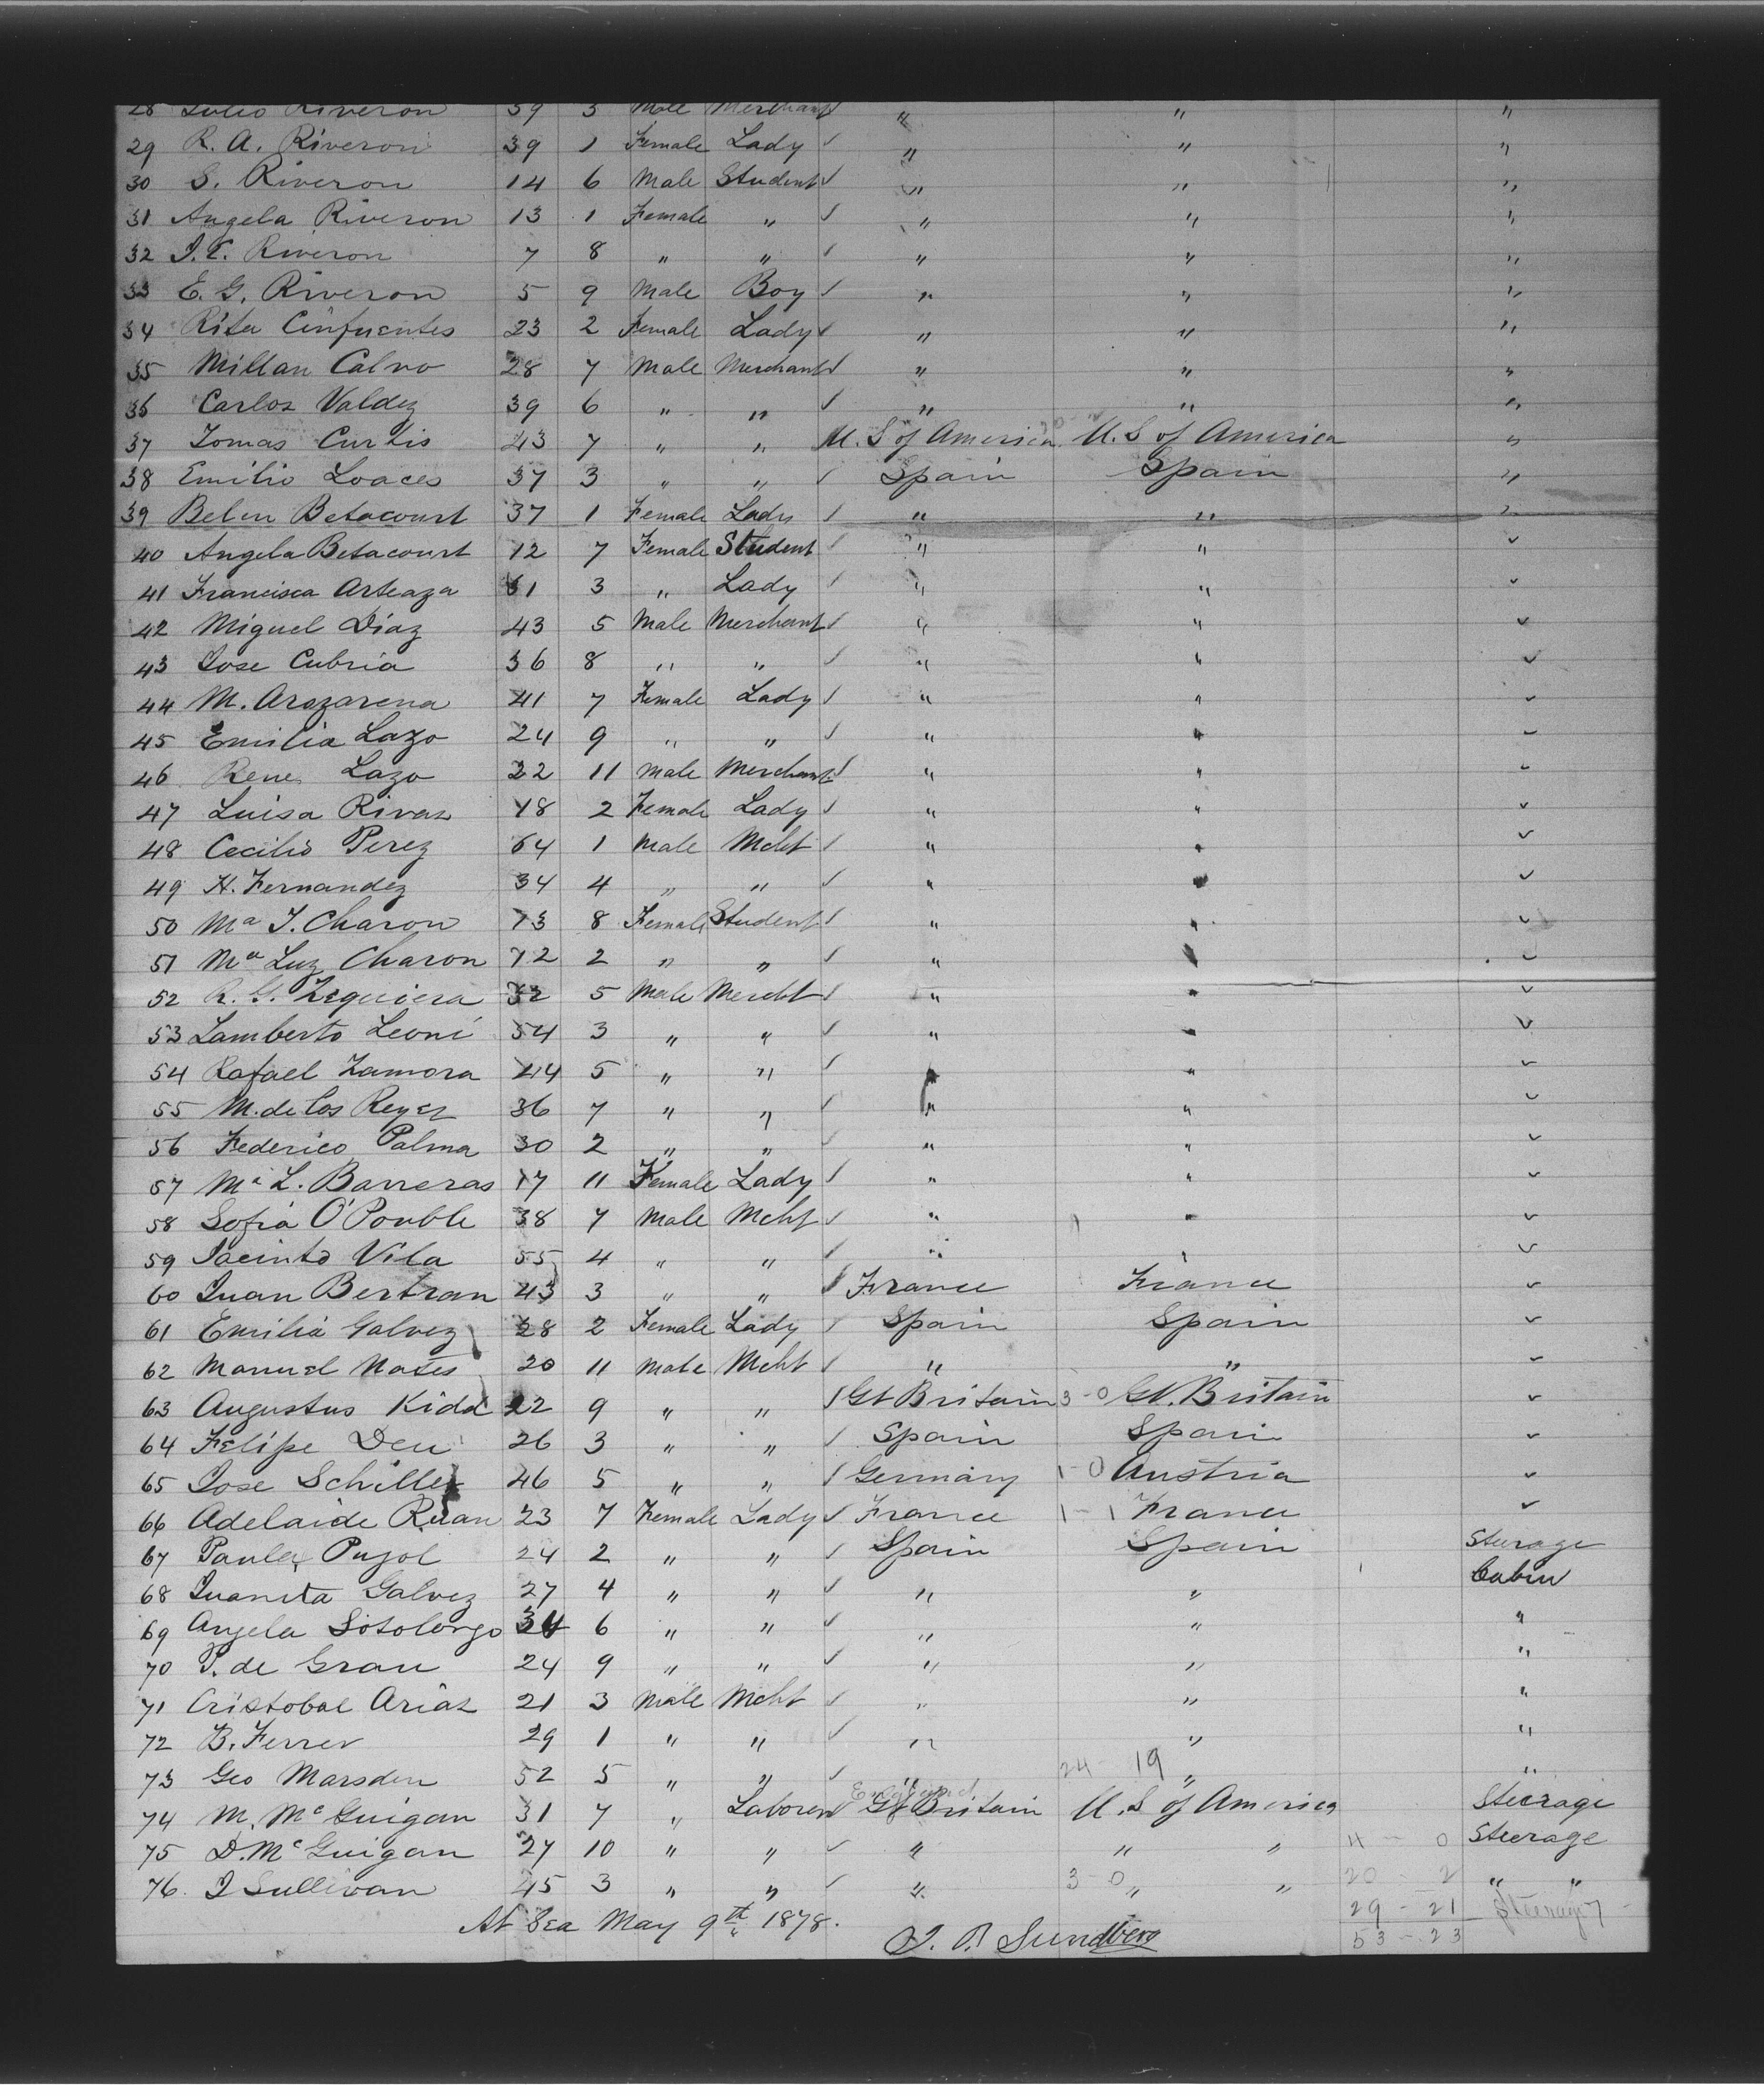 28 Julio Riveron 39 3 Male Merchant " " "
29 R. A. Riveron 39 1 Female Lady " " "
30 S. Riveron 14 6 Male Student " " "
31 Angela Riveron 13 1 Female " " " "
32 Riveron 7 8 " " " " "
33 E. G. Riveron 5 9 Male Boy " " "
34 Rita Cinfuentes 23 2 Female Lady " " "
35 Millan Calvo 28 7 Male Merchant " " "
36 Carlos Valdez 39 6 " " " " "
37 Tomas Curtis 43 7 " " U. S of America U. S of America "
38 Emilio Loaces 37 3 " " Spain Spain "
39 Belen Betacourt 37 1 Female Lady " " "
40 Angela Betacourt 12 7 Female Student " "
41 Francisca Arteaza 61 3 " Lady " "
42 Miguel Diaz 43 5 Male Merchant " "
43 Jose Cubria 36 8 " " " "
44 M. Arozarena 41 7 Female Lady " "
45 Emilia Lazo 24 9 " " " "
46 Rene Lazo 22 11 Male Merchant " "
47 Luisa Rivas 18 2 Female Lady " "
48 Cecilio Perez 64 1 Male Mcht " "
49 H. Fernandez 34 4 " " " "
50 Ma J. Charon 13 8 Female Student " "
51 Ma Luz Charon 12 2 " " " "
52 R. G. Zequiera 32 5 Male Mercht " "
53 Lamberto Leoni 54 3 " " " "
54 Rafael Zamora 44 5 " " " "
55 M. de los Reyes 36 7 " " " "
56 Federico Palma 30 2 " " " "
57 Ma L. Barreras 17 11 Female Lady " "
58 Sofia O'Pouble 38 7 Male Mcht " "
59 Jacinto Vila 55 4 " " " "
60 Juan Bertran 43 3 " " France France
61 Emilia Galvez 28 2 Female Lady Spain Spain
62 Manuel Nates 20 11 Male Mcht " "
63 Augustus Kidd 22 9 " " Gt Britain 3-0 Gt. Britain
64 Felipe Deu 26 3 " " Spain Spain
65 Jose Schiller 46 5 " " Germany 1-0 Austria
66 Adelaide Ruan 23 7 Female Lady France 1-1 France
67 Paula Pujol 24 2 " " Spain Spain Steerage
68 Juanita Galvez 27 4 " " " " Cabin
69 Angela Sotolongo 34 6 " " " " "
70 de Grau 24 9 " " " " "
71 Cristobal Arias 21 3 Male Mcht " " "
72 B. Ferrer 29 1 " " " " "
73 Geo Marsden 52 5 " " " 24-19 " "
74 M. McGuigan 31 7 " Laborer England Gt Britain U. S of America Steerage
75 D. McGuigan 27 10 " " " " " 4-0 Steerage
76. J Sullivan 45 3 " " " 3-0 " " 20-2 " "
29-21
At Sea May 9th 1878. Sundberg 53-23